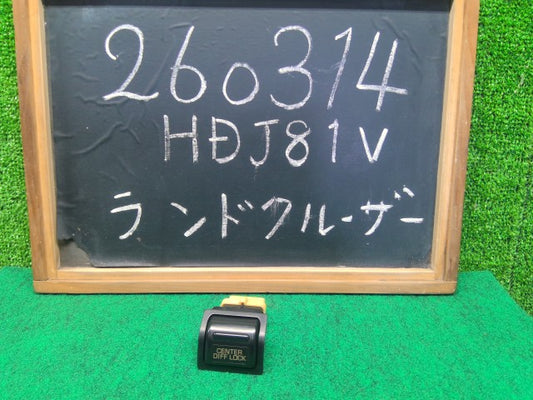 260314
HDJ81V
ランドクルーザー
CENTER
DIFF LOCK